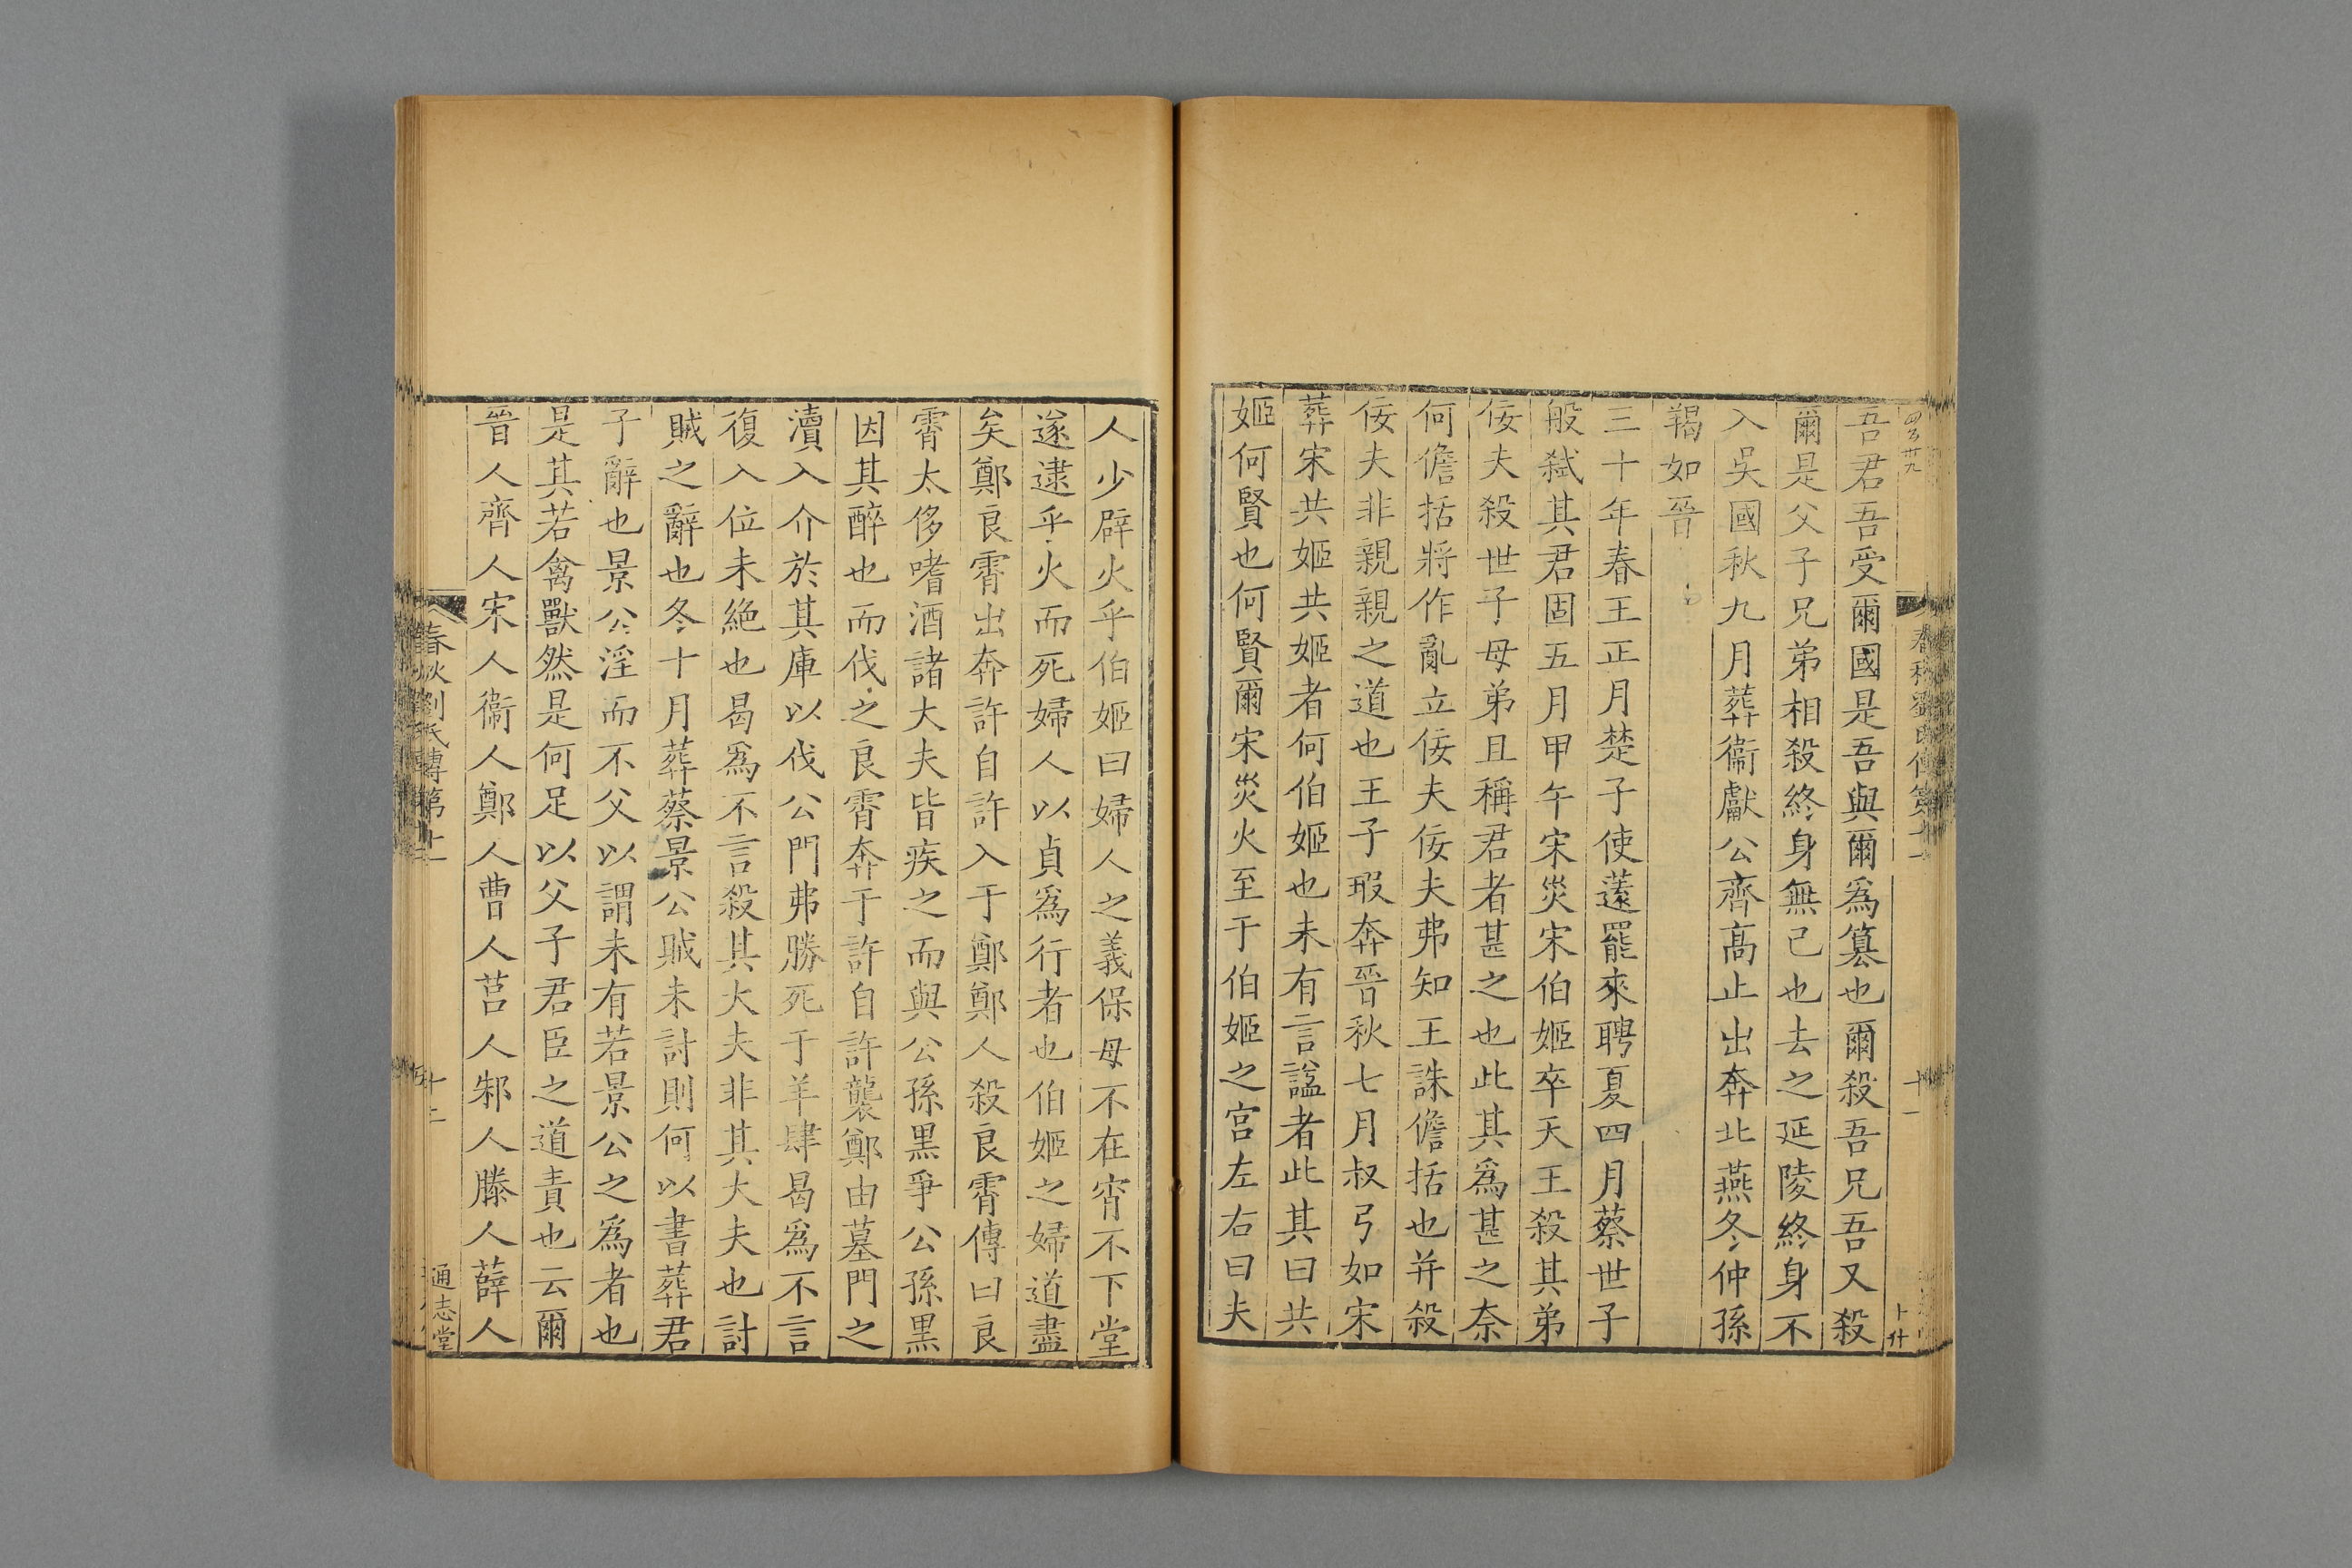 吾君吾受爾國是吾與爾爲篡也爾殺吾兄吾又殺
爾是父子兄弟相殺終身無已也去之延陵終身不
入吳國秋九月葬衞獻公齊高止出奔北燕冬仲孫
羯如晉
三十年春王正月楚子使薳罷來聘夏四月蔡世子
般弒其君固五月甲午宋災宋伯姬卒天王殺其弟
佞夫殺世子母弟且稱君者甚之也此其爲甚之奈
何儋括將作亂立佞夫佞夫弗知王誅儋括也并殺
佞夫非親親之道也王子瑕奔晉秋七月叔弓如宋
葬宋共姬共姬者何伯姬也未有言諡者此其曰共
姬何賢也何賢爾宋災火至于伯姬之宮左右曰夫
人少辟火乎伯姬曰婦人之義保母不在宵不下堂
遂逮乎火而死婦人以貞爲行者也伯姬之婦道盡
矣鄭良霄出奔許自許入于鄭鄭人殺良霄傳曰良
霄太侈嗜酒諸大夫皆疾之而與公孫黑爭公孫黑
因其醉也而伐之良霄奔于許自許襲鄭由墓門之
瀆入介於其庫以伐公門弗勝死于羊肆曷爲不言
復入位未絶也曷爲不言殺其大夫非其大夫也討
賊之辭也冬十月葬蔡景公賊未討則何以書葬君
子辭也景公淫而不父以謂未有若景公之爲者也
是其若禽獸然是何足以父子君臣之道責也云爾
晉人齊人宋人衞人鄭人曹人莒人邾人滕人薛人
春秋劉氏傳第十一
十二
通志堂